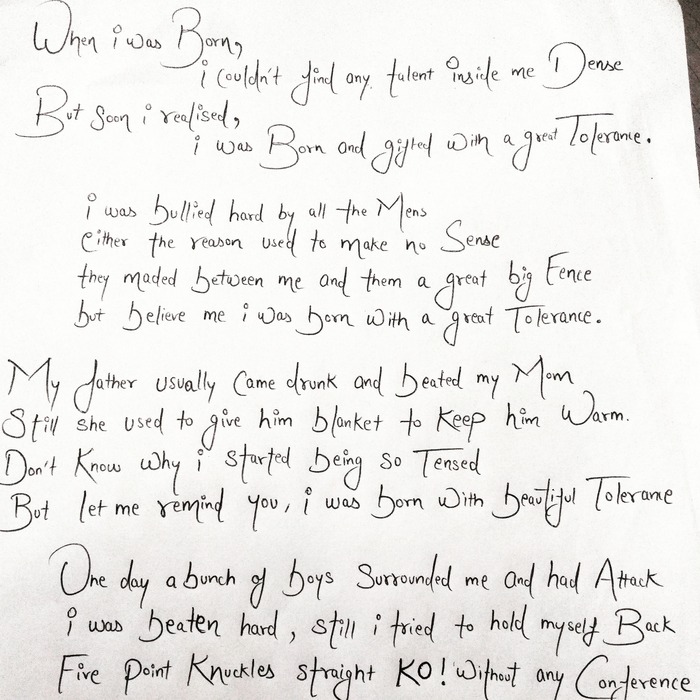 When i was Born,
i couldn't find any talent inside me Dense
But Soon i realised,
i was Born and gifted with a great Tolerance.
i was bullied hard by all the Mens
Either the reason used to make no Sense
they maded between me and them a great big Fence
but believe me i was born with a great Tolerance.
My father usually Came drunk and beated my Mom
Still she used to give him blanket to Keep him Warm.
Don't Know why i started being so Tensed
But let me remind you, i was born with beautiful Tolerance
One day a bunch of boys Surrounded me and had Attack
i was beaten hard, still i tried to hold myself Back
Five Point Knuckles straight KO! Without any Conference